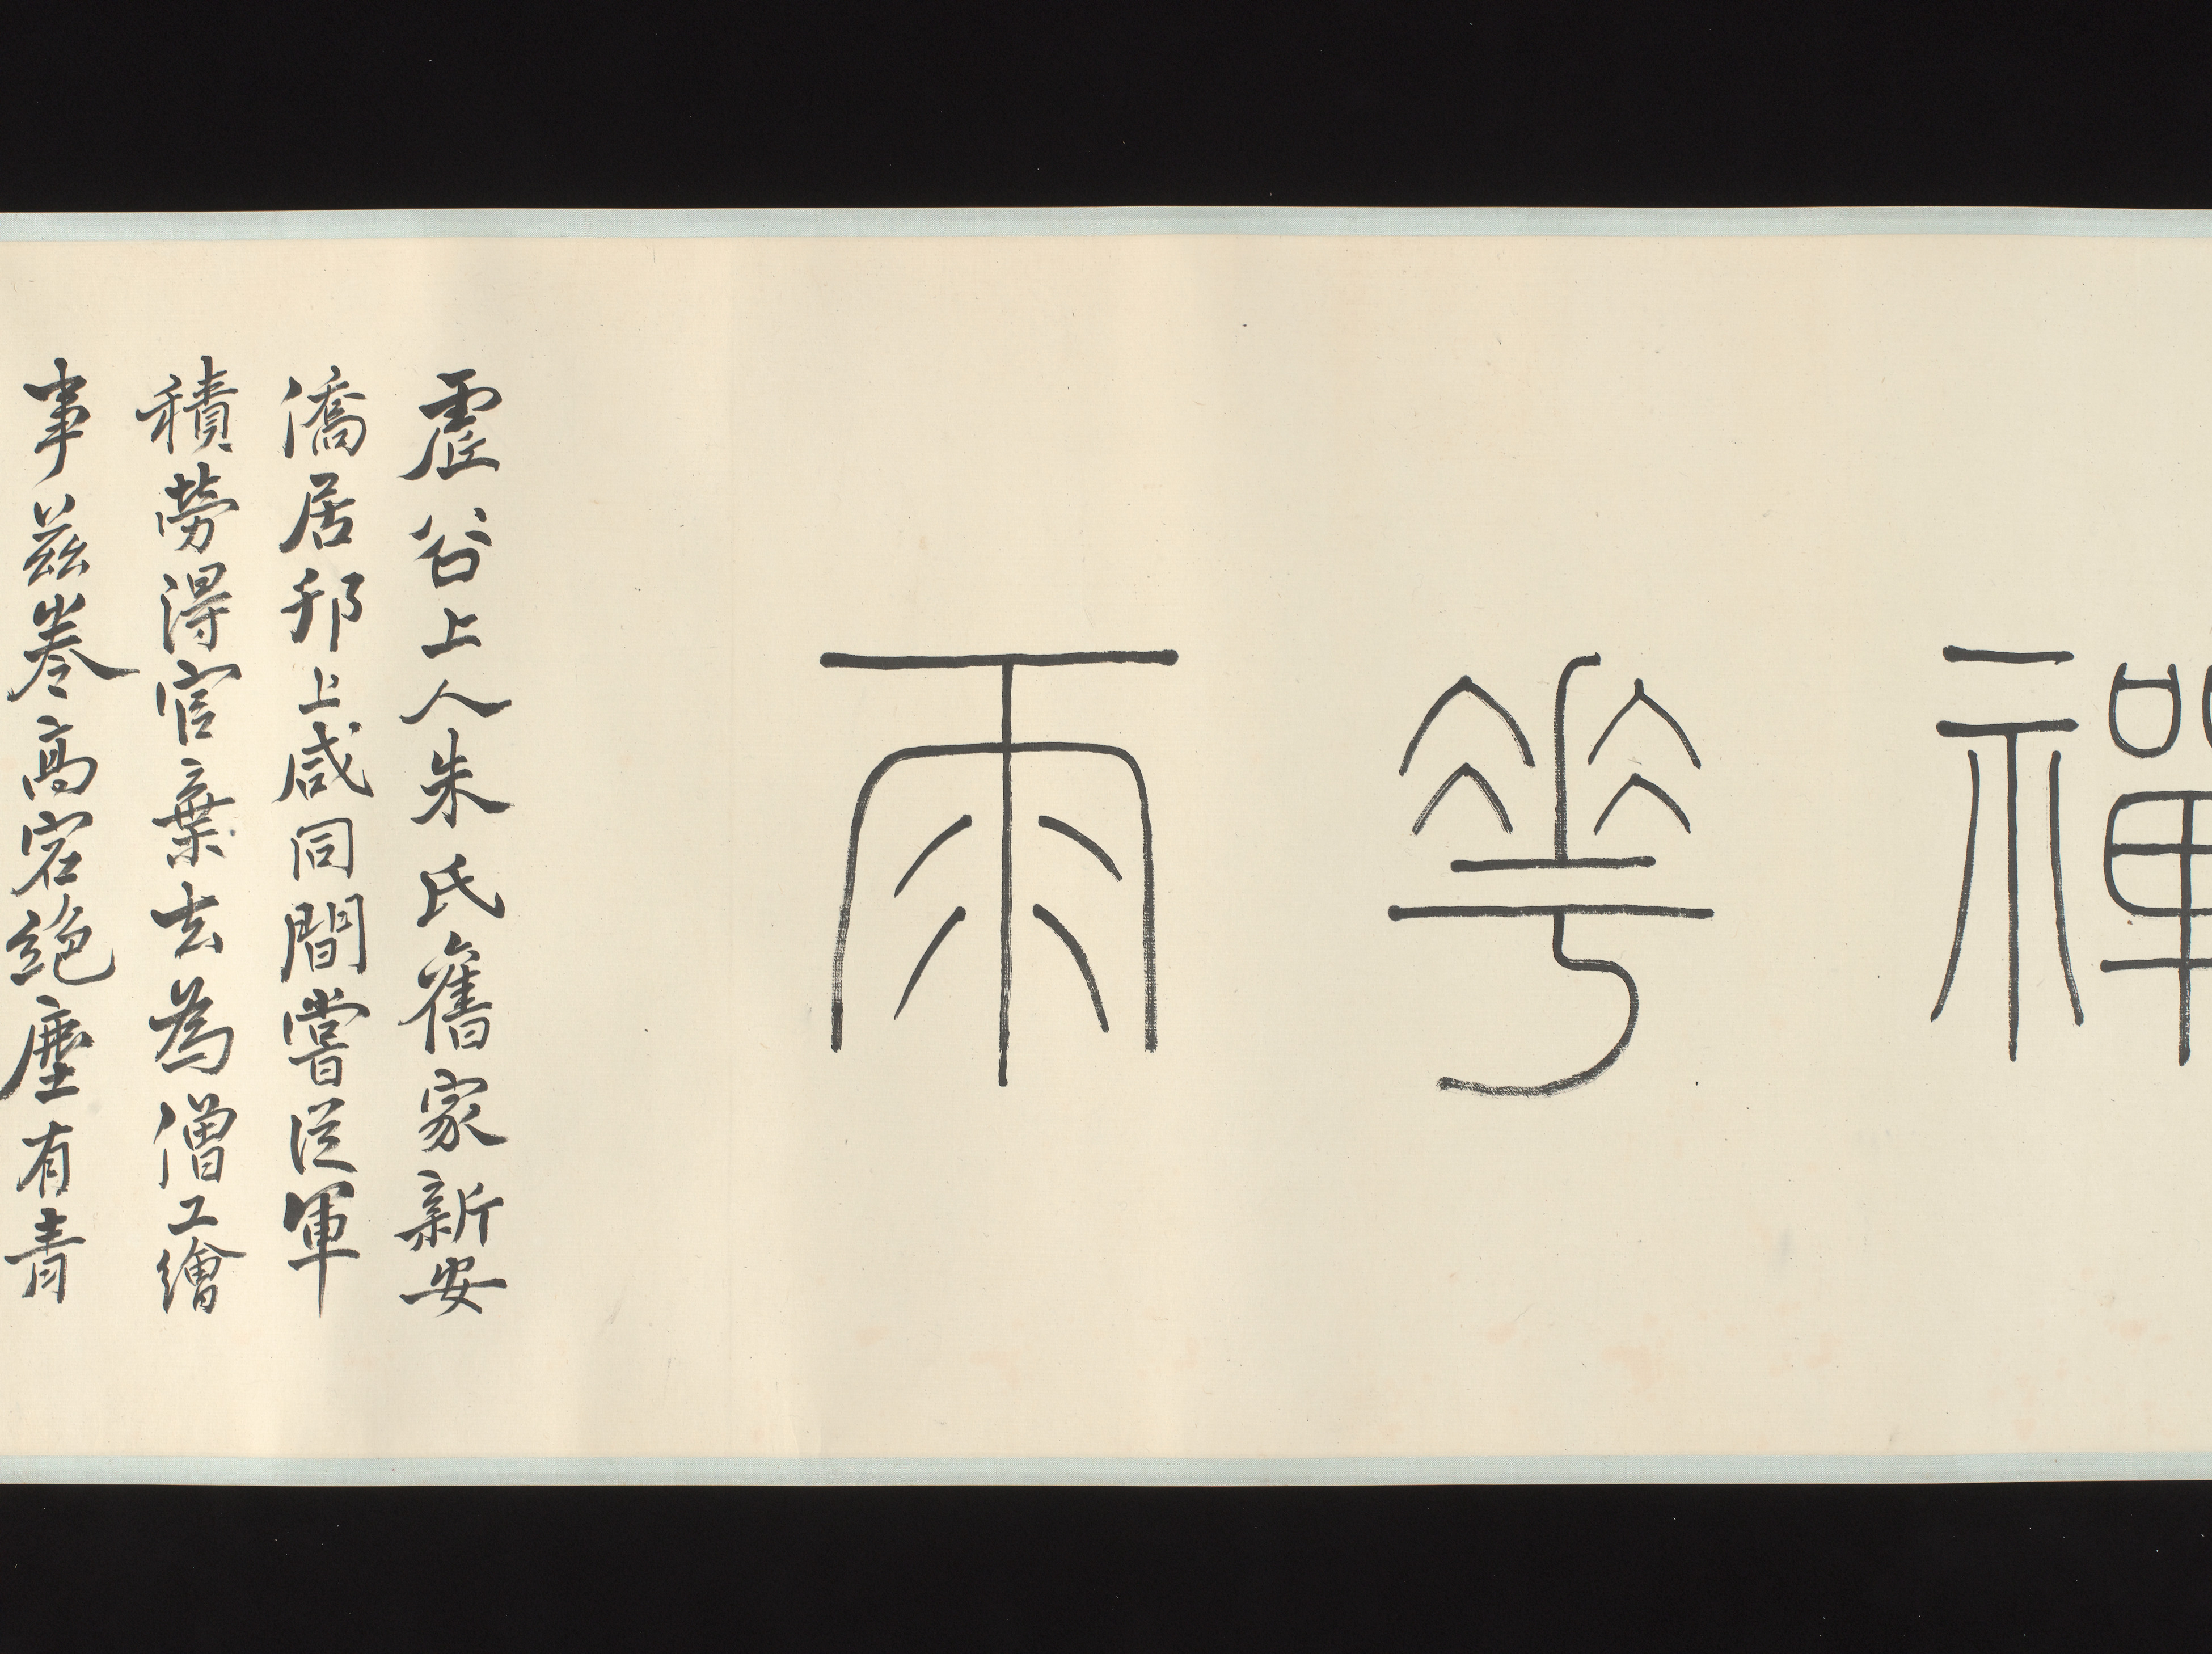 禪華雨
虛谷上人朱氏舊家新安
僑居邗上咸同間嘗從軍
積勞得官棄去為僧工繪
事茲卷高宕絕塵有青